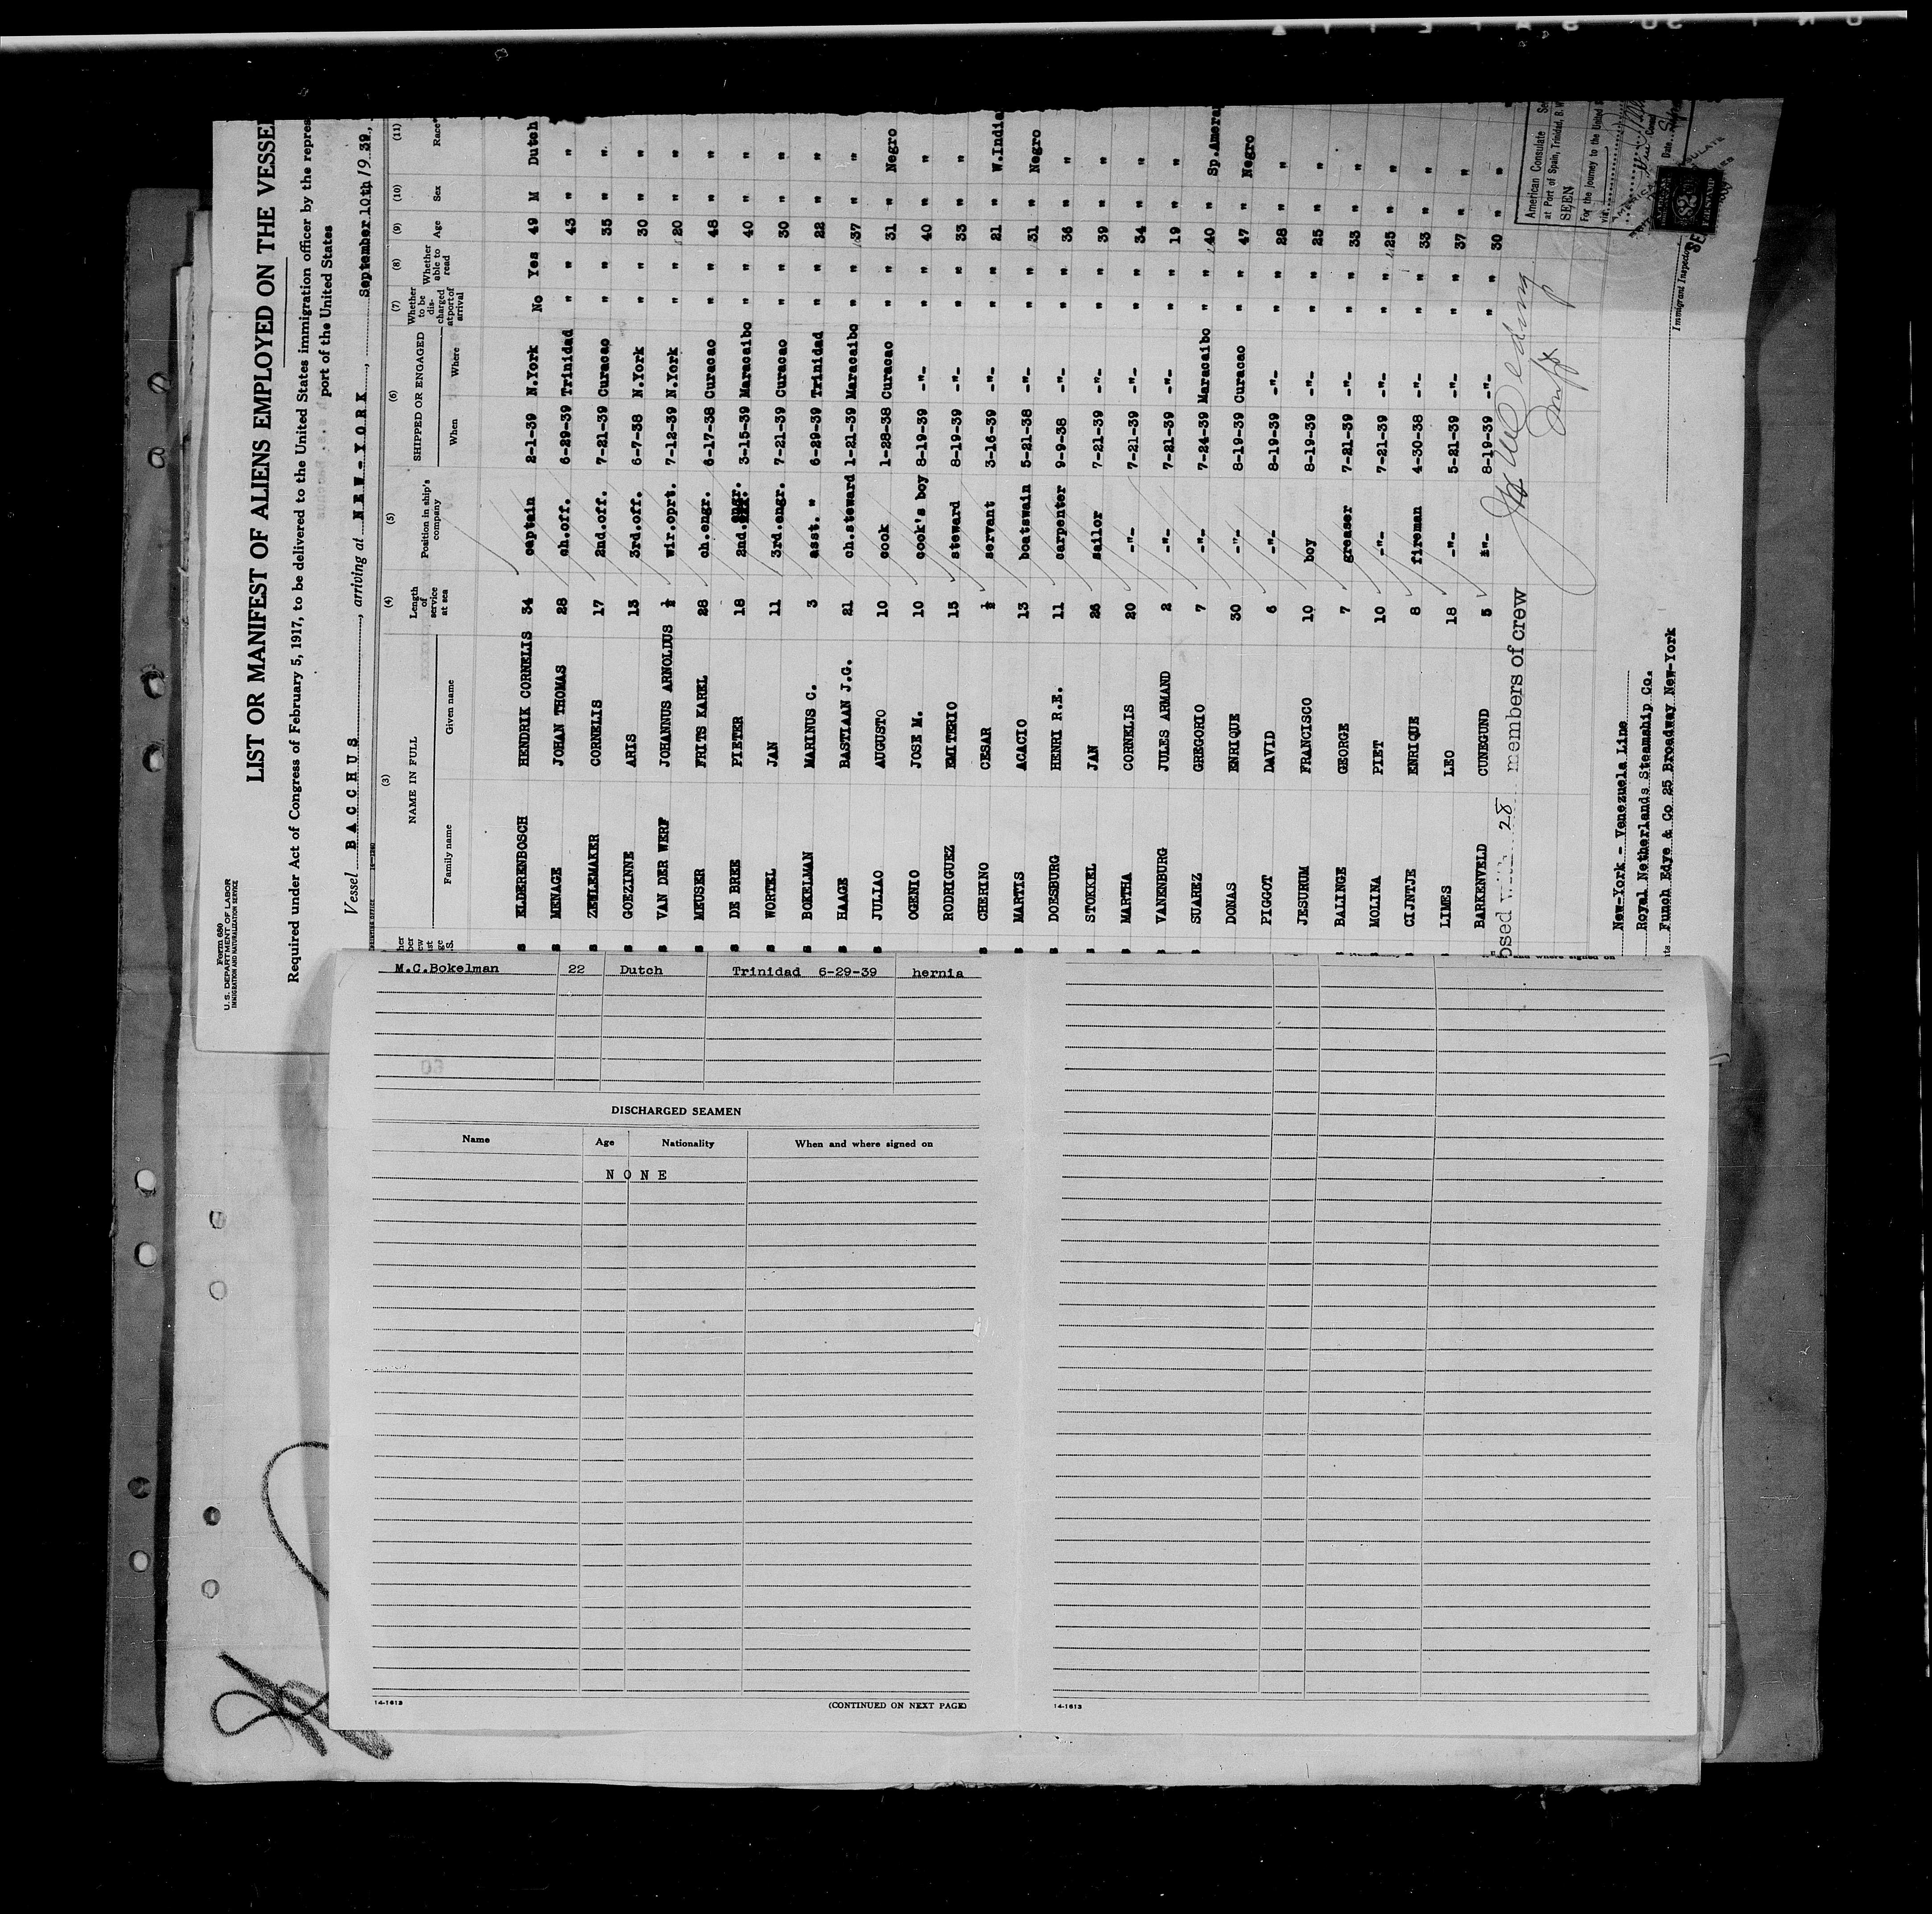 Form 680
U. S. DEPARTMENT OF LABOR
IMMIGRATION AND NATURALIZATION SERVICE
LIST OR MANIFEST OF ALIENS EMPLOYED ON THE VESSEL
Required under Act of Congress of February 5, 1917, to be delivered to the United States immigration officer by the repres
port of the United States
Vessel BACCHUS, arriving at NEW-YORK, September 10th, 1939.,
(3) (4) (5) (6) (7) (8) (9) (10) (11)
NAME IN FULL
Family name Given name
Length of service at sea
Position in ship's company
SHIPPED OR ENGAGED
When Where
Whether to be discharged at port of arrival
Whether able to read
Age Sex Race*
ELDERENBOSCH HENDRIK CORNELIS 34 captain 2-1-39 N.York No Yes 49 M Dutch
MENAGE JOHAN THOMAS 28 ch.off. 6-29-39 Trinidad " " 43 " "
ZEWLEMAKER CORNELIS 17 2nd.off. 7-21-39 Curacao " " 35 " "
GOEZINNE ARIS 13 3rd.off. 6-7-38 N.York " " 30 " "
VAN DER WERF JOHANNUS ARNOLDUS ½ wir.oprt. 7-12-39 N.York " " 20 " "
MEUSER FRITS KAREL 28 ch.engr. 6-17-38 Curacao " " 48 " "
DE BREE PIETER 18 2nd.engr. 3-15-39 Maracaibo " " 40 " "
WORTEL JAN 11 3rd.engr. 7-21-39 Curacao " " 30 " "
BOKELMAN MARINUS C. 3 asst. " 6-29-39 Trinidad " " 22 " "
HAAGE BASTIAAN J.G. 21 ch.steward 1-21-39 Maracaibo " " 37 " "
JULIAO AUGUSTO 10 cook 1-28-38 Curacao " " 31 " Negro
OGENIO JOSE M. 10 cook's boy 8-19-39 -"- " " 40 " "
RODRIGUEZ EMITERIO 15 steward 8-19-39 -"- " " 33 " "
CHERINO CESAR ½ servant 3-16-39 -"- " " 21 " W.India
MARTIS ACACIO 13 boatswain 5-21-38 -"- " " 31 " Negro
DOESBURG HENRI R.E. 11 carpenter 9-9-38 -"- " " 36 " "
STOKKEL JAN 26 sailor 7-21-39 -"- " " 39 " "
MARTHA CORNELIS 20 -"- 7-21-39 -"- " " 34 " "
VANENBURG JULES ARMAND 2 -"- 7-21-39 -"- " " 19 " "
SUAREZ GREGORIO 7 -"- 7-24-39 Maracaibo " " 40 " Sp.Amera
DONAS ENRIQUE 30 -"- 8-19-39 Curacao " " 47 " Negro
PIGGOT DAVID 6 -"- 8-19-39 -"- " " 28 " "
JESURUM FRANCISCO 10 boy 8-19-39 -"- " " 25 " "
BALINGE GEORGE 7 greaser 7-21-39 -"- " " 33 " "
MOLINA PIET 10 -"- 7-21-39 -"- " " 25 " "
CIJNTJE ENRIQUE 8 fireman 4-30-38 -"- " " 33 " "
LIMES LEO 18 -"- 5-21-39 -"- " " 37 " "
BARKENVELD CUNEGUND 5 -"- 8-19-39 -"- " " 30 " "
osed with 28 members of crew
New-York - Venezuela Line
Royal Netherlands Steamship Co.
Funch Edye & Co 25 Broadway New-York
Immigrant Inspector
American Consulate
at Port of Spain, Trinidad, B. W.
SEEN
For the journey to the United S
via
Date
M.C.Bokelman 22 Dutch Trinidad 6-29-39 hernia
DISCHARGED SEAMEN
Name Age Nationality When and where signed on
NONE
14-1613
(CONTINUED ON NEXT PAGE)
14-1613